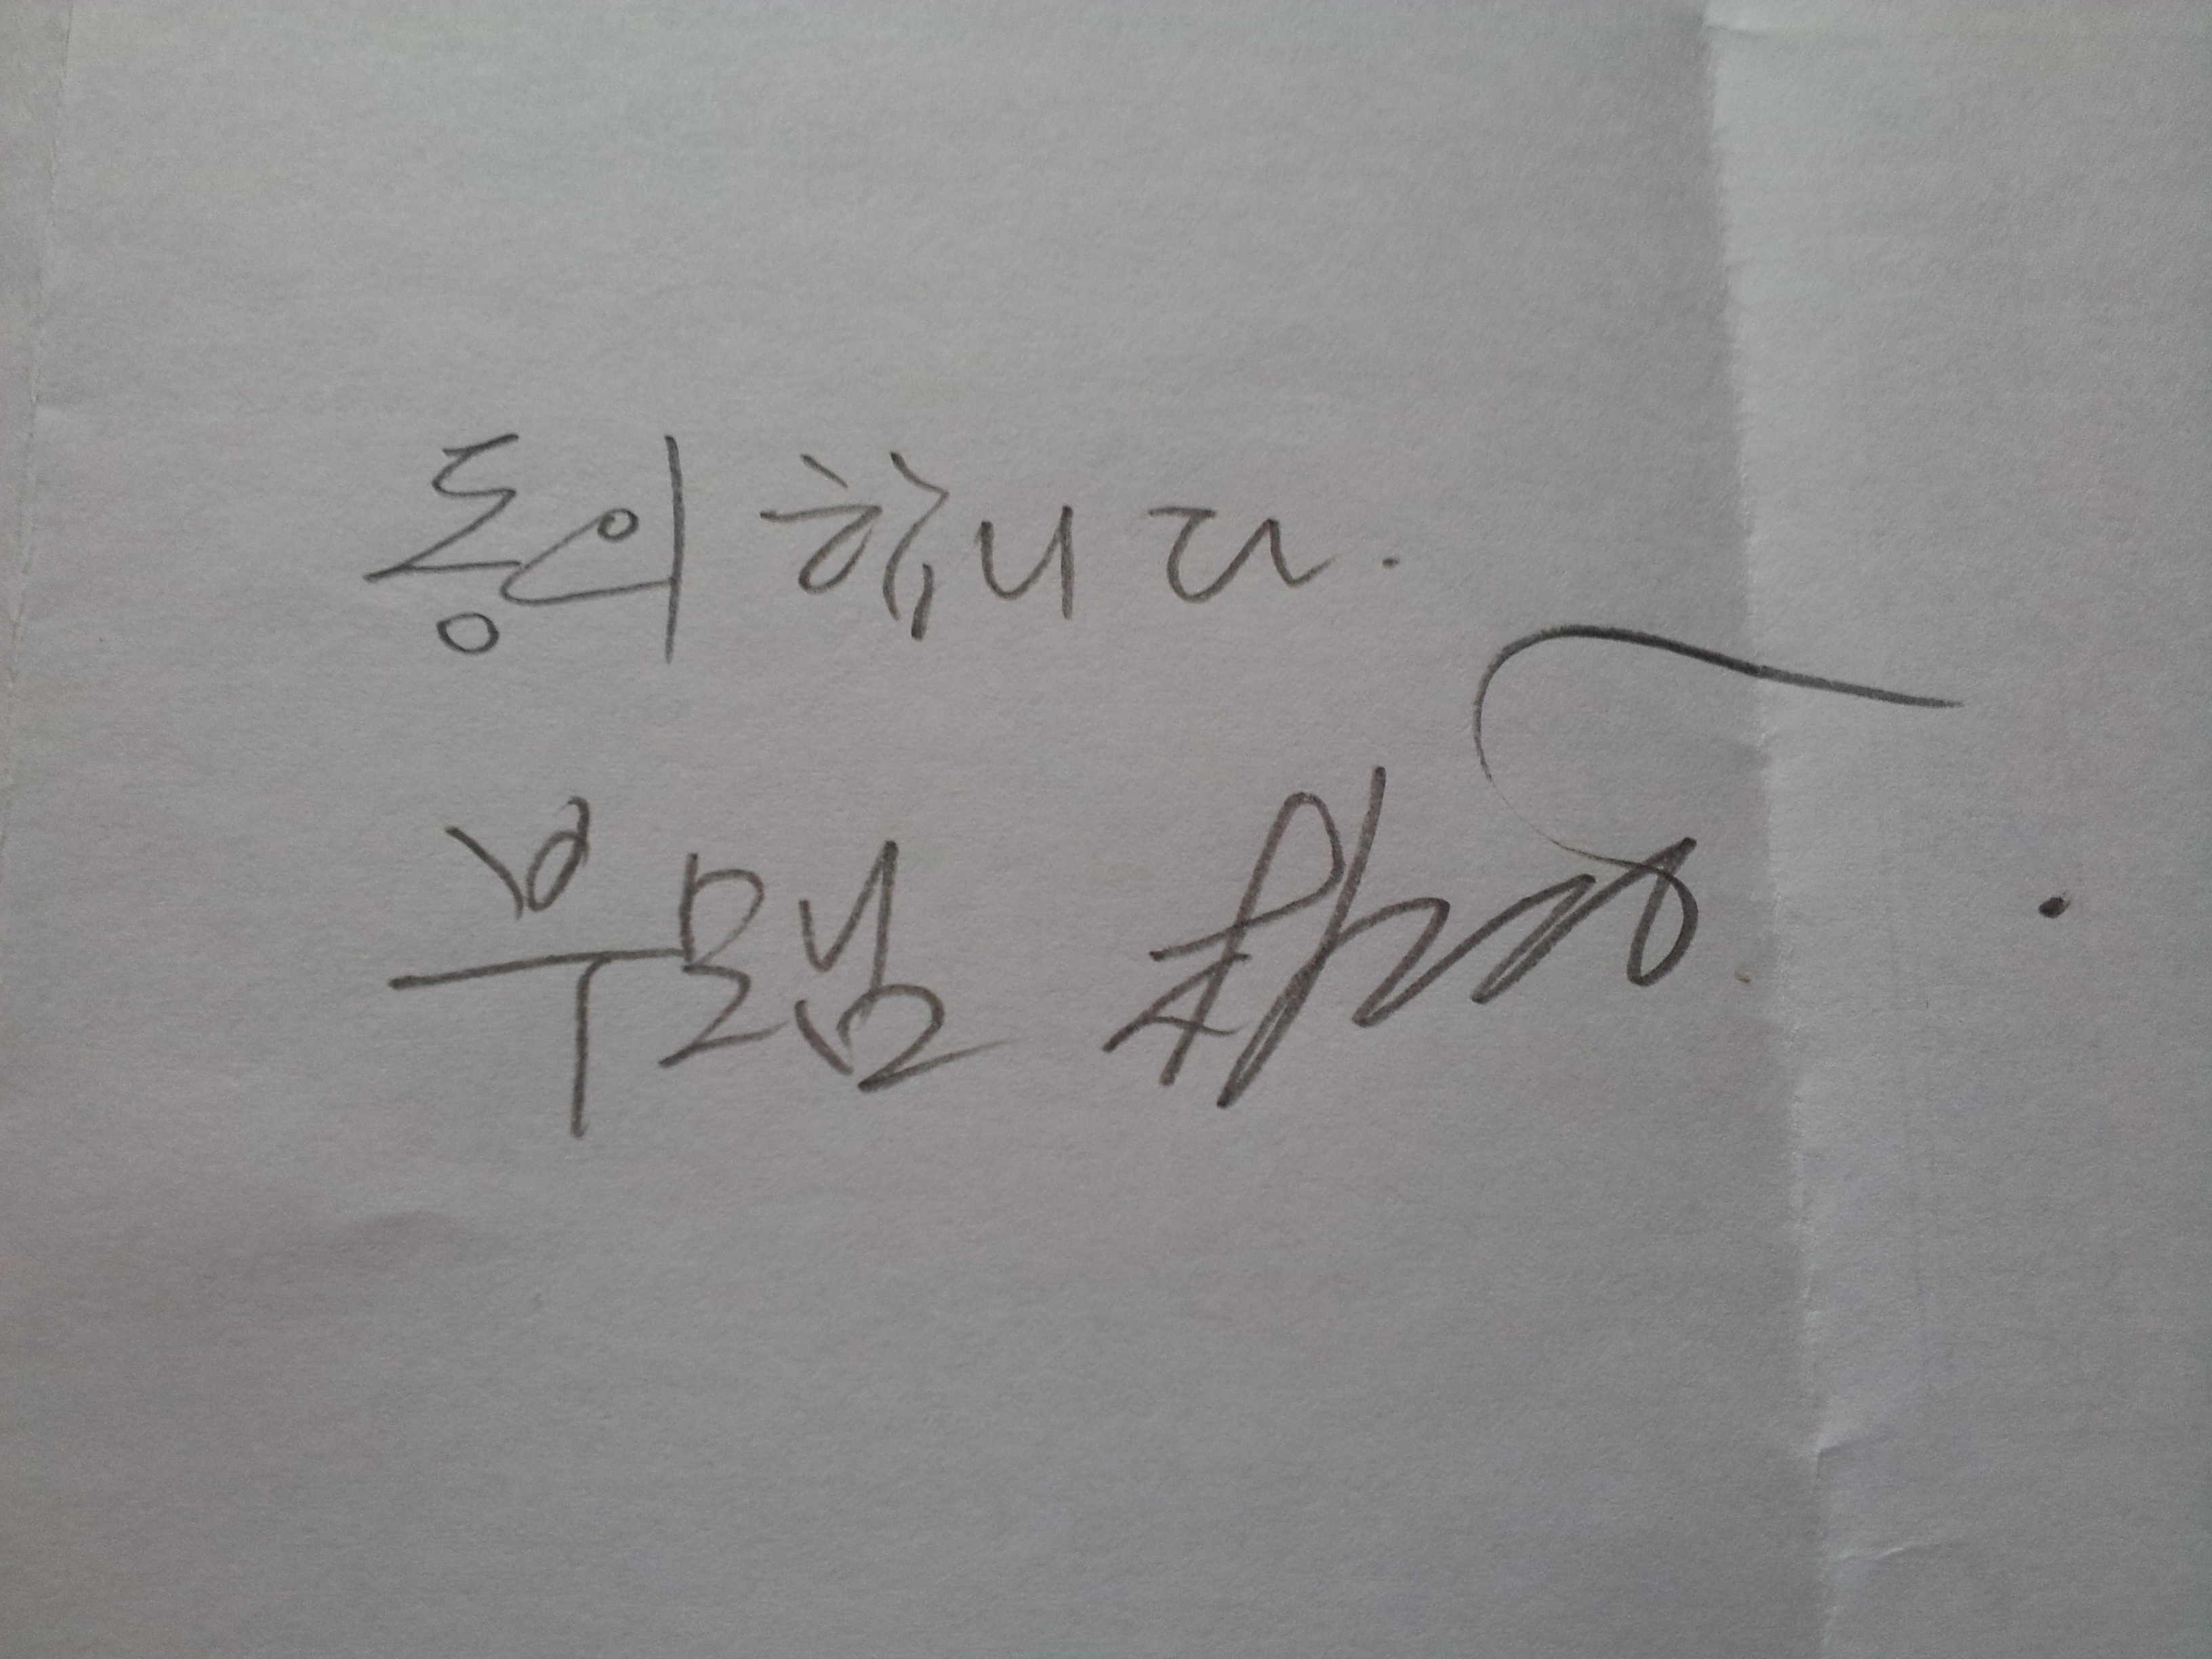 동의 합니다.
부모님